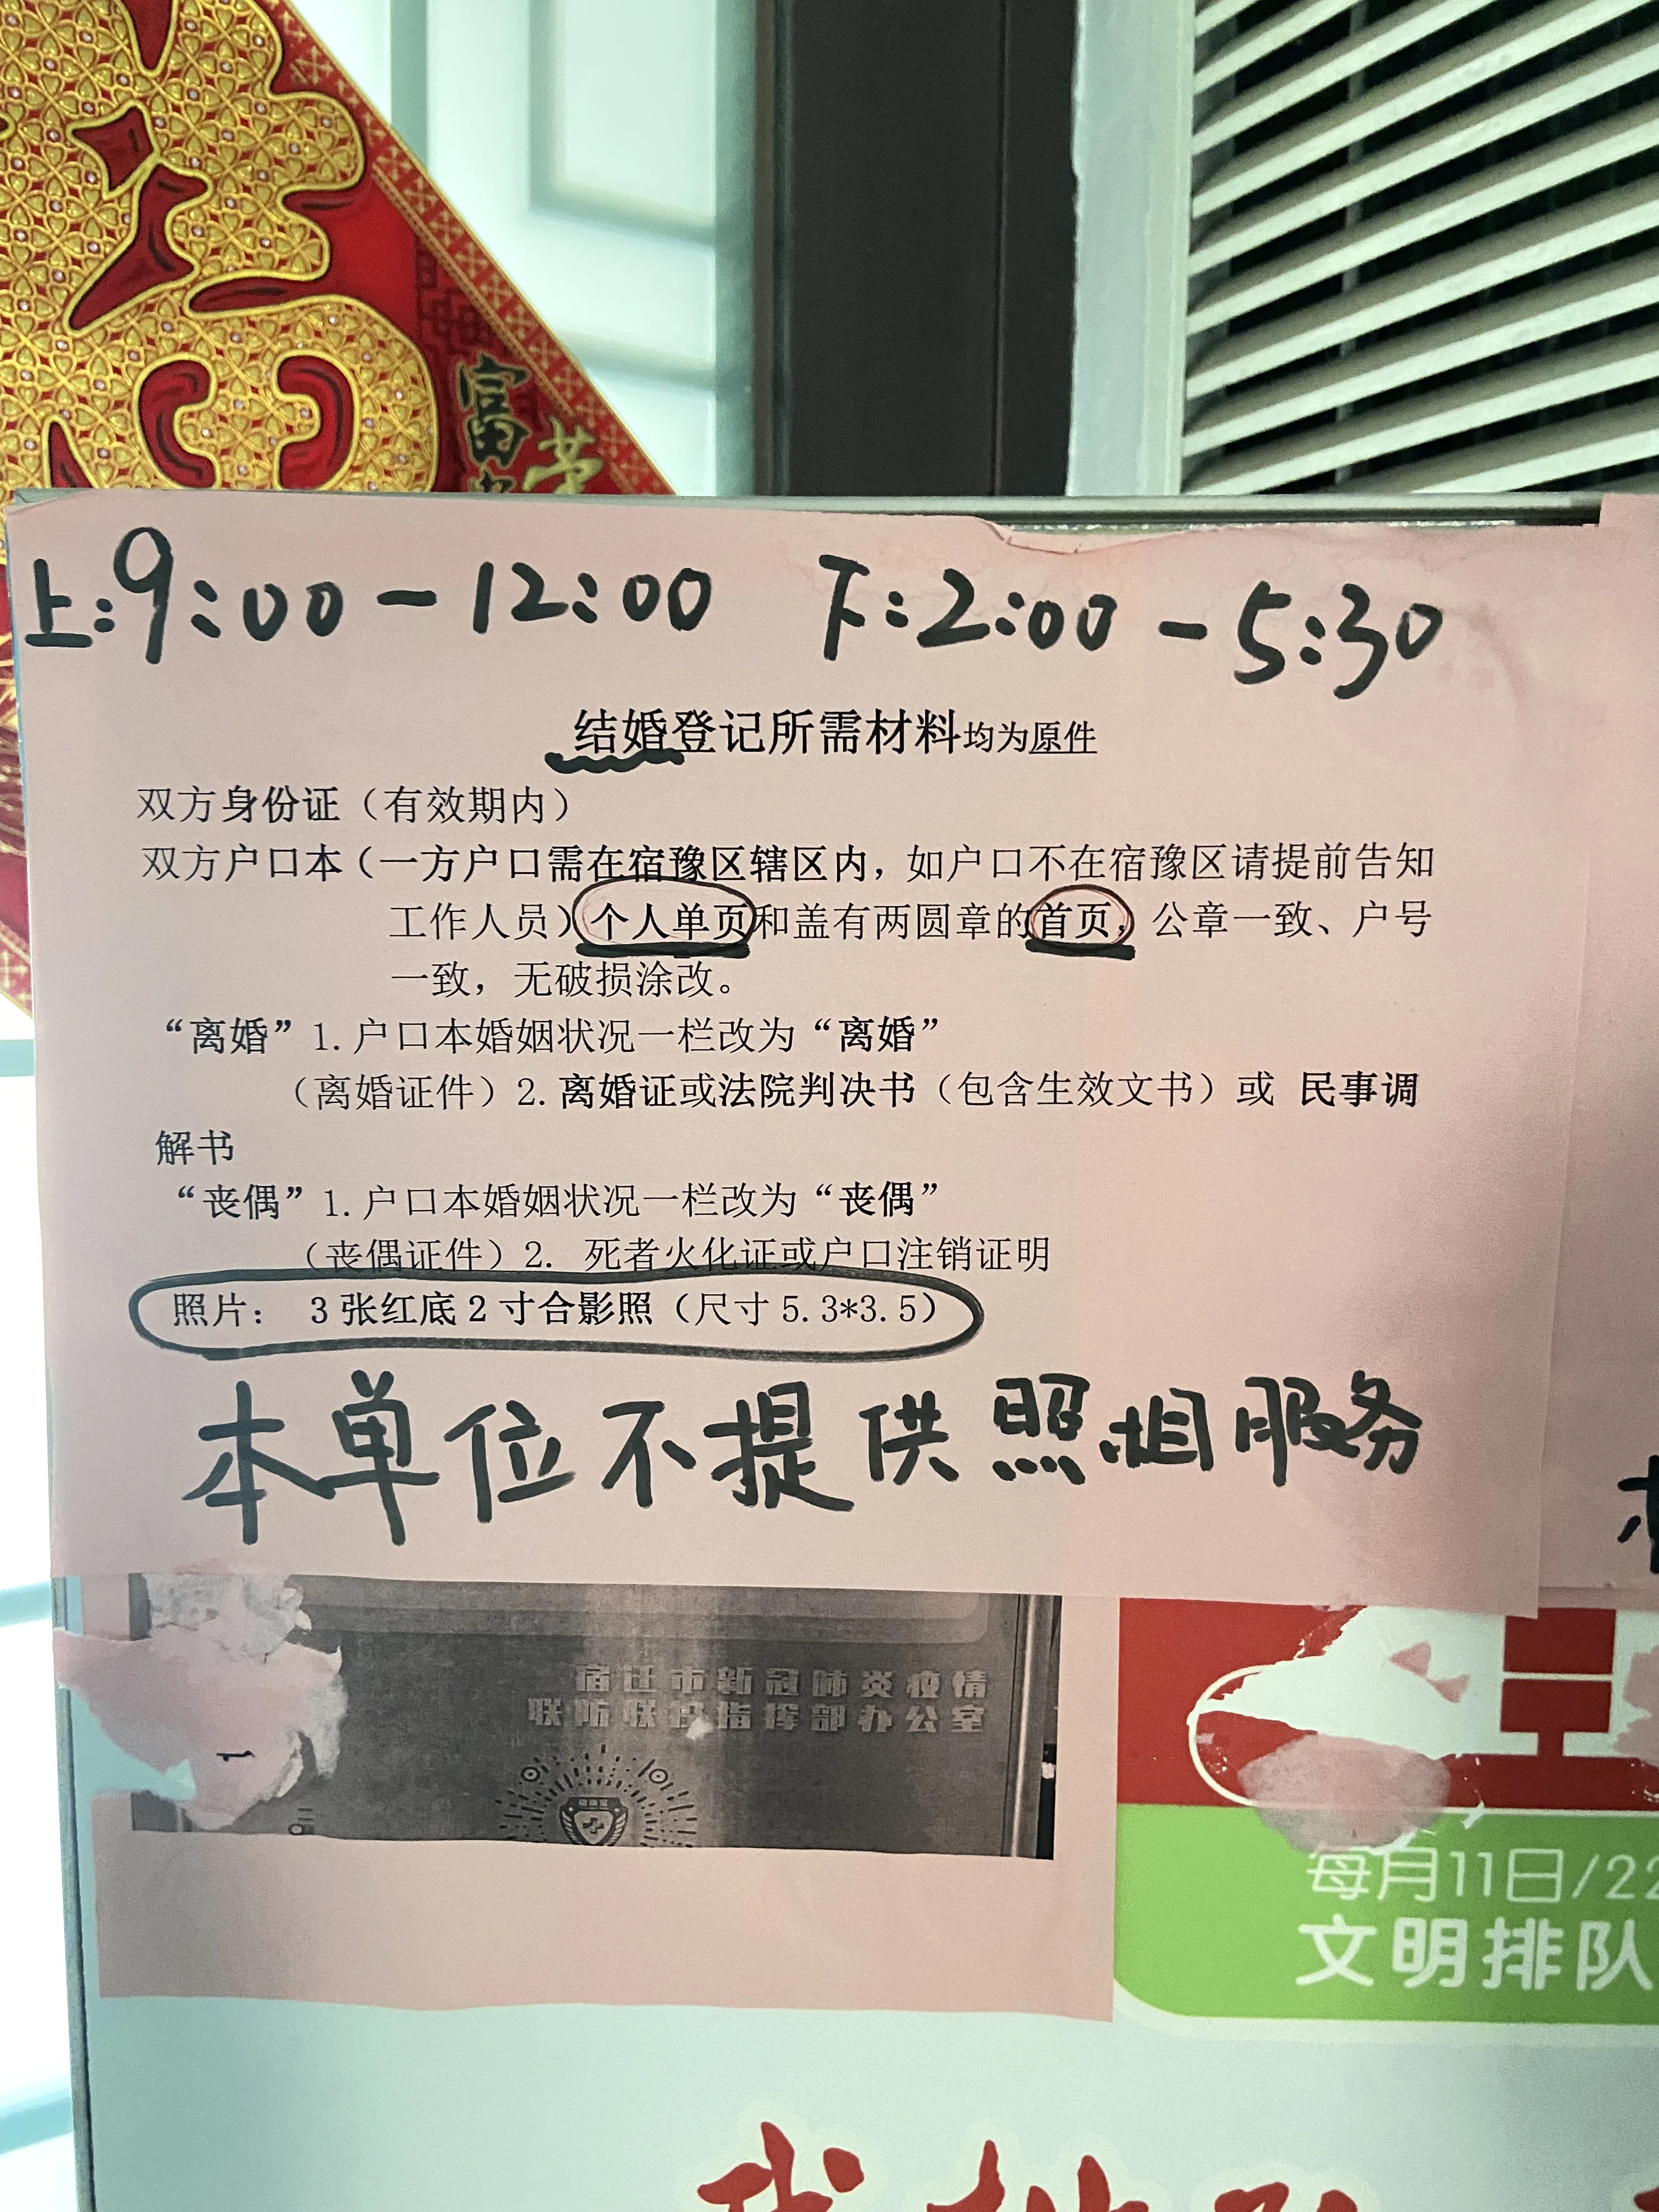 富
荣
上:9:00-12:00 下:2:00-5:30
结婚登记所需材料均为原件
双方身份证（有效期内）
双方户口本（一方户口需在宿豫区辖区内，如户口不在宿豫区请提前告知
工作人员）个人单页和盖有两圆章的首页，公章一致、户号
一致，无破损涂改。
“离婚”1.户口本婚姻状况一栏改为“离婚”
（离婚证件）2.离婚证或法院判决书（包含生效文书）或 民事调
解书
“丧偶”1.户口本婚姻状况一栏改为“丧偶”
（丧偶证件）2. 死者火化证或户口注销证明
照片： 3张红底2寸合影照（尺寸5.3*3.5）
本单位不提供照相服务
宿迁市新冠肺炎疫情
联防联控指挥部办公室
每月11日/22
文明排队